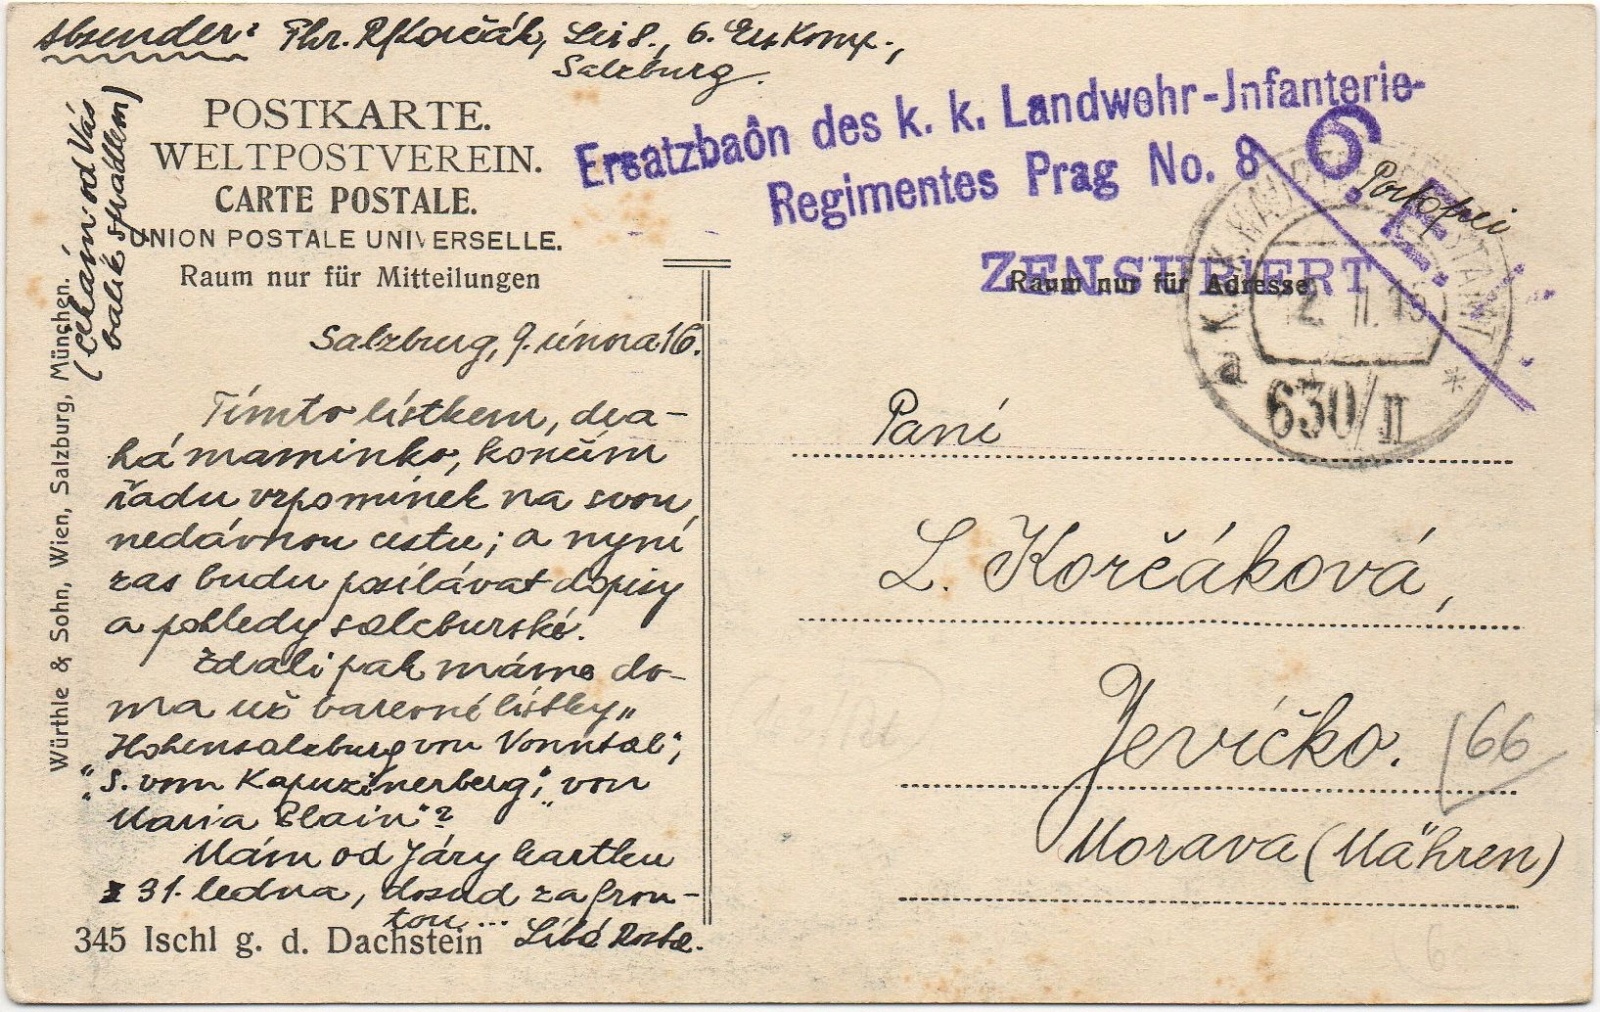 Absender: Fhr. R Korčák, Leis., 6. Ers Komp.,
Salzburg.
(čekám od Vás
balík s prádlem)
POSTKARTE.
WELTPOSTVEREIN.
CARTE POSTALE.
UNION POSTALE UNIVERSELLE.
Raum nur für Mitteilungen
Ersatzbaôn des k. k. Landwehr-Infanterie-
Regimentes Prag No. 8
6. E.
Portofrei
ZENSURIERT
Raum nur für Adresse
2 II 16
a *
630/II
Salzburg, 9. února 16.
Tímto lístkem, dra-
há maminko, končím
řadu vzpomínek na svou
nedávnou cestu; a nyní
zas budu posílávat dopisy
a pohledy salcburské.
Zdali pak máme do-
ma už barevné lístky „
Hohensalzburg von Nonntal",
„S. vom Kapuzinerberg", „von
Maria Plain"?
Mám od Járy kartku
z 31. ledna, dosud za fron-
tou... Líbá Rosta.
345 Ischl g. d. Dachstein
Würthle & Sohn, Wien, Salzburg, München.
Paní
L. Korčáková,
Jevíčko.
66
Morava (Mähren)